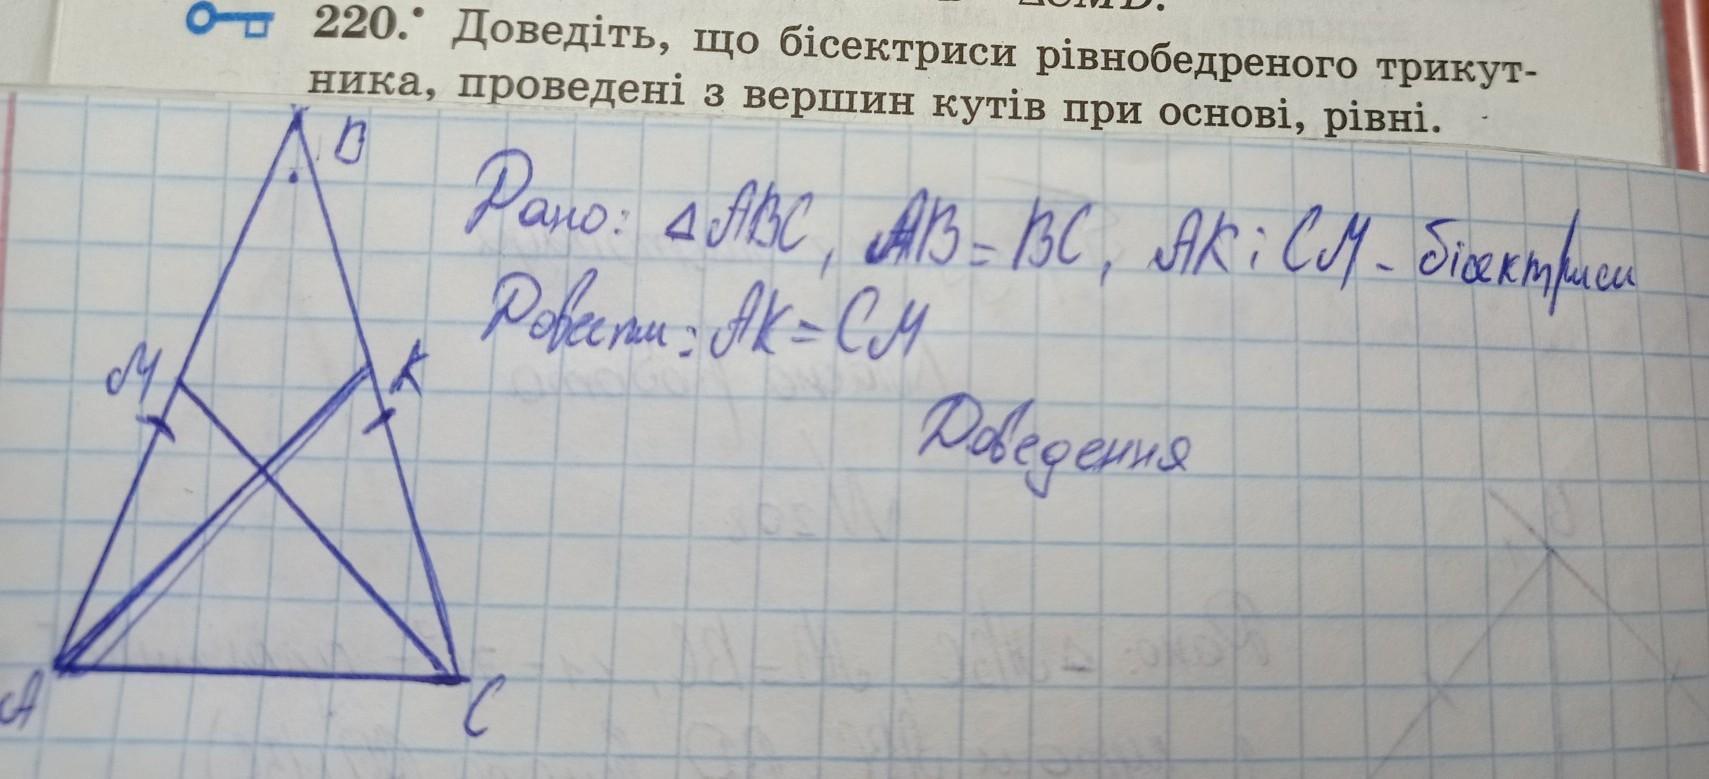 220.• Доведіть, що бісектриси рівнобедреного трикут-
ника, проведені з вершин кутів при основі, рівні.
B
Дано: △ABC, AB = BC, AK і CM - бісектриси
Довести: AK = CM
M
K
Доведення
A
C